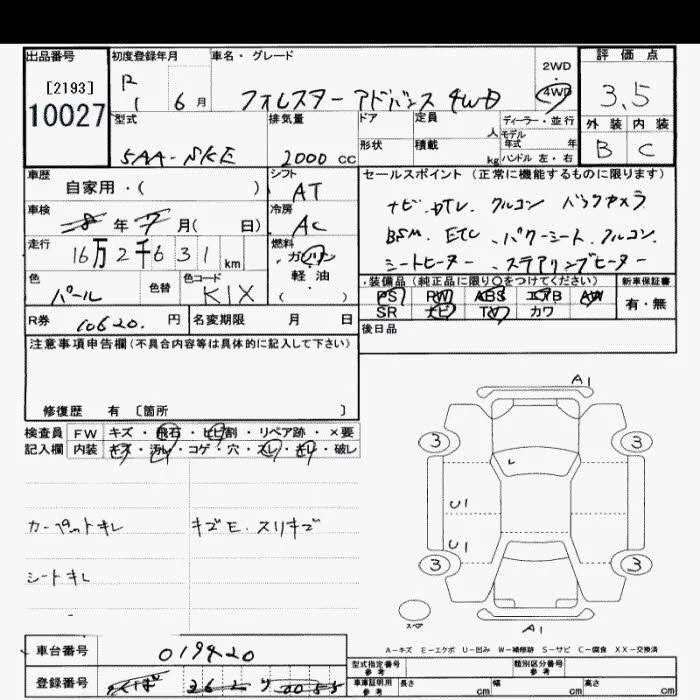 出品番号
[2193]
10027
初度登録年月
R
1 6 月
車名・グレード
フォレスター アドバンス 4WD
2WD
4WD
評価点
3.5
外装 内装
B C
型式
5AA-SKE
排気量
2000 cc
ドア
形状
定員
人
積載
kg
ディーラー・並行
モデル
年式 年
ハンドル 左・右
車歴
自家用・( )
車検
8 年 7 月( 日)
走行
16万2千631 km
色
パール
色替
色コード
K1X
シフト
AT
冷房
AC
燃料
ガソリン
軽・油
( )
セールスポイント (正常に機能するものに限ります)
ナビ. DTV. クルコン バックカメラ
BSM. ETC. パワーシート. クルコン.
シートヒーター. ステアリングヒーター
装備品(純正品に限り○をつけてください)
PS PW ABS エアB AW
SR ナビ TV カワ
新車保証書
有・無
R券 10620. 円
名変期限 月 日
後日品
注意事項申告欄(不具合内容等は具体的に記入して下さい)
修復歴 有 〔箇所 〕
検査員 FW キズ・飛石・ヒビ割・リペア跡・×要
記入欄 内装 キズ・汚レ・コゲ・穴・スレ・キレ・破レ
カーペットキレ
キズE. スリキズ
シートキレ
A1
3 3
U1
U1
3 3
スペア
A1
A-キズ E-エクボ U-凹み W-補修跡 S-サビ C-腐食 XX-交換済
車台番号
019420
登録番号
つくば 362
型式指定番号
参考
類別区分番号
参考
車庫証明用
参考
長さ cm
幅 cm
高さ cm